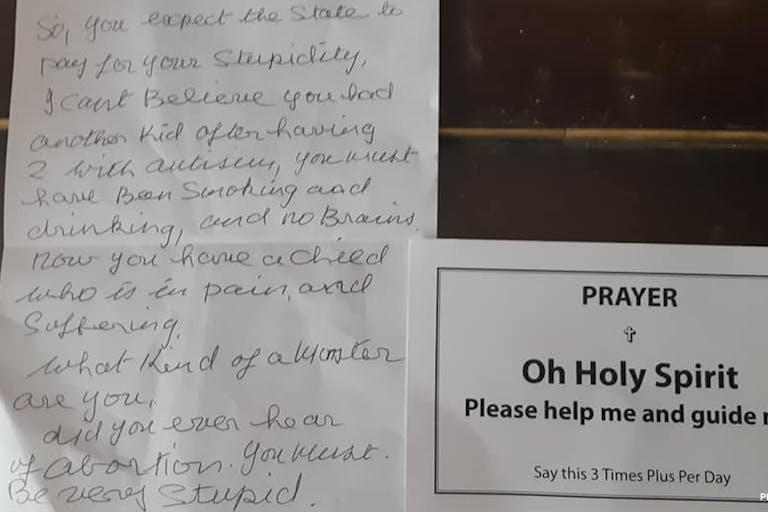 So, you expect the State to
pay for your Stupidity,
I cant Believe you had
another kid after having
2 with autism, you must
have Been Smoking and
drinking, and no Brains.
now you have a cheed
who is in pain, and
Suffering.
what kind of a Monster
are you.
did you ever hear
of abortion. you must.
Be very Stupid.
PRAYER
Oh Holy Spirit
Please help me and guide
Say this 3 Times Plus Per Day